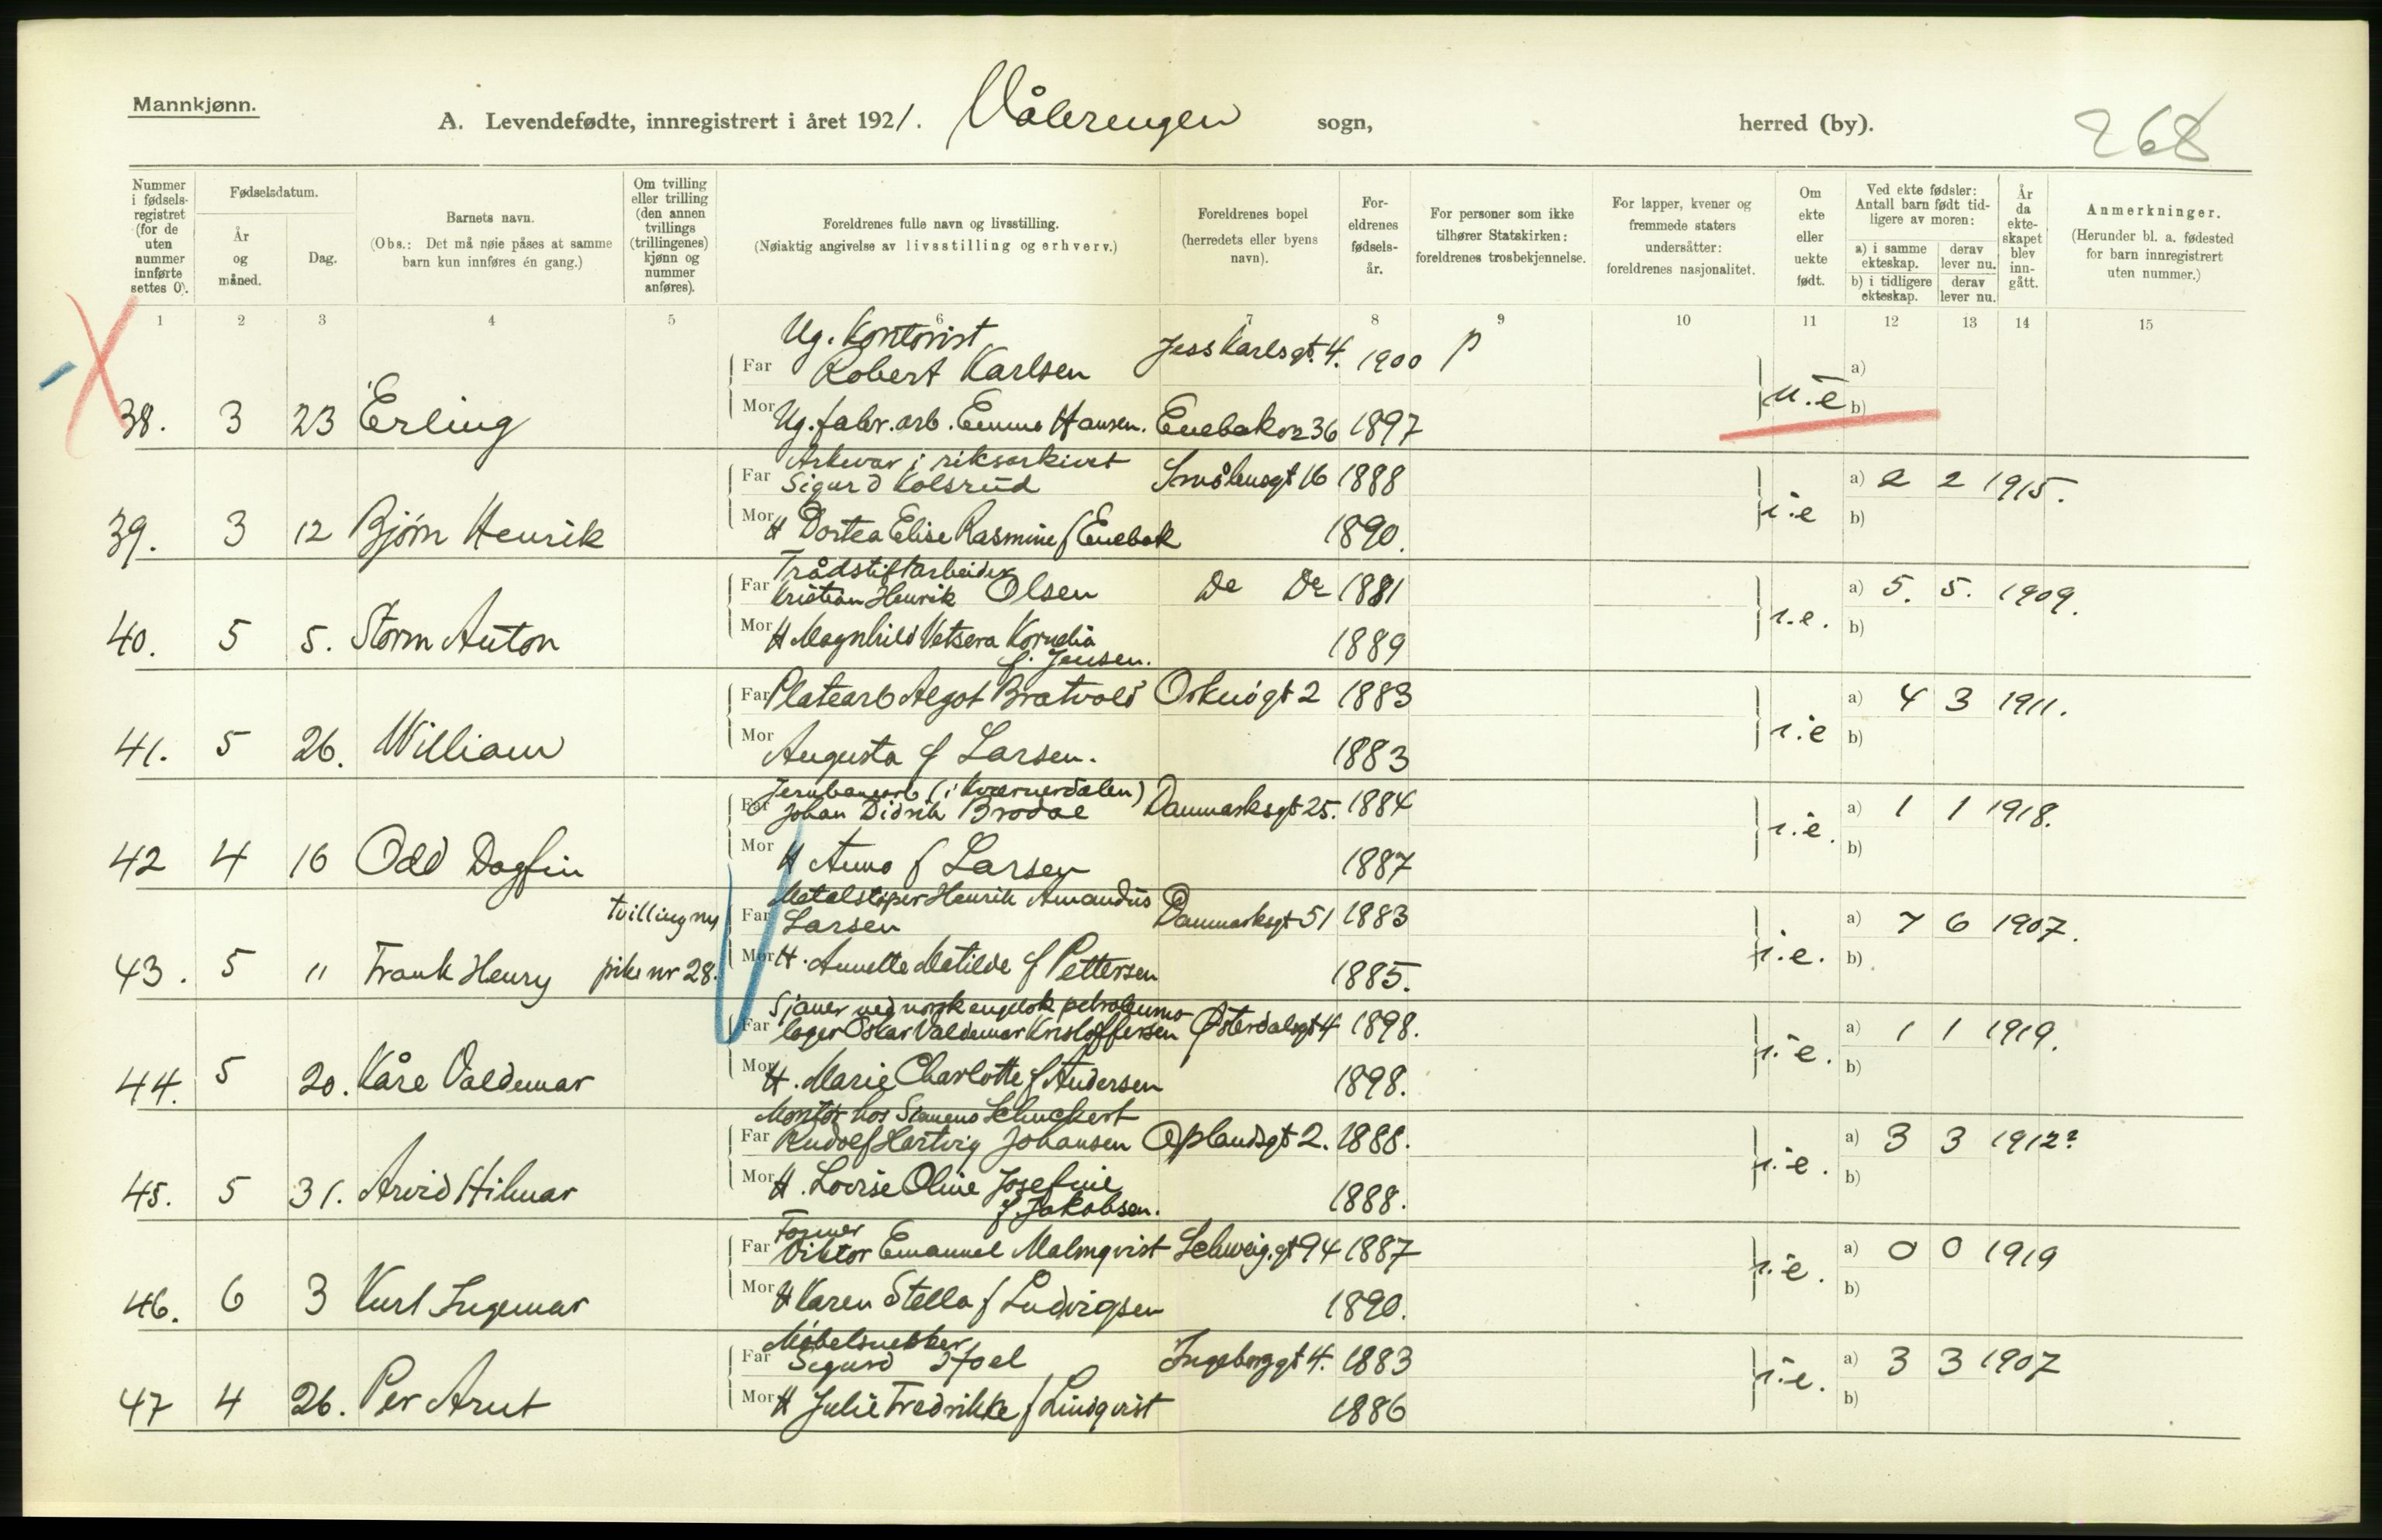 Mannkjønn.
A. Levendefødte, innregistrert i året 1921. Vålerengen sogn, herred (by). 268
Nummer i fødsels-registret (for de uten nummer innførte settes 0).
Fødselsdatum.
År og måned.
Dag.
Barnets navn.
(Obs.: Det må nøie påses at samme barn kun innføres én gang.)
Om tvilling eller trilling (den annen tvillings (trillingenes) kjønn og nummer anføres).
Foreldrenes fulle navn og livsstilling.
(Nøiaktig angivelse av livsstilling og erhverv.)
Foreldrenes bopel (herredets eller byens navn).
For-eldrenes fødsels-år.
For personer som ikke tilhører Statskirken: foreldrenes trosbekjennelse.
For lapper, kvener og fremmede staters undersåtter: foreldrenes nasjonalitet.
Om ekte eller uekte født.
Ved ekte fødsler: Antall barn født tid-ligere av moren:
a) i samme ekteskap. derav lever nu.
b) i tidligere ekteskap. derav lever nu.
År da ekte-skapet blev inn-gått.
Anmerkninger.
(Herunder bl. a. fødested for barn innregistrert uten nummer.)
1 2 3 4 5 6 7 8 9 10 11 12 13 14 15
Ug. Kontorist
Far Robert Karlsen Jess Karlsgt. 4. 1900 p a)
38. 3 23 Erling Mor Ug. fabr. arb. Emma Hansen. Enebakvn 36 1897 u.e b)
Arkivar i riksarkivet
Far Sigurd Kolsrud Smålensgt 16 1888 a) 2 2 1915.
39. 3 12 Bjørn Henrik Mor H Dortea Elise Rasmine f Enebak 1890. i.e b)
Trådstiftarbeider
Far Kristian Henrik Olsen Do Do 1881 a) 5. 5. 1909.
40. 5 5. Storm Anton Mor H Magnhild Vetsera Kornelia 1889 i.e. b)
f. Jensen.
Far Platearb Algot Bratvold Oskusgt 2 1883 a) 4 3 1911.
41. 5 26. William Mor Augusta f Larsen. 1883 i.e b)
Jernbanearb (i Kværnerdalen)
Far Johan Didrik Brodal Danmarksgt 25. 1884 a) 1 1 1918.
42 4 16 Odd Dagfin Mor H Anna f Larsen 1887 i.e. b)
Metalstøper Henrik Amandus
tvilling m Far Larsen Danmarksgt 51 1883 a) 7 6 1907.
43. 5 11 Frank Henry pike nr 28. Mor H. Annette Matilde f Pettersen 1885. i.e. b)
Sjauer ved norsk engelsk petroleums-
Far lager Oskar Valdemar Kristoffersen Østerdalsgt 4 1898. a) 1 1 1919.
44. 5 20. Kåre Valdemar Mor H. Marie Charlotte f Andersen 1898. i.e. b)
Montør hos Siemens Schuckert
Far Rudolf Hartvig Johansen Oplandsgt 2. 1888. a) 3 3 1912?
45. 5 31. Arvid Hilmar Mor H. Lovise Oline Josefine 1888. i.e. b)
f. Jakobsen.
Former
Far Viktor Emanuel Malmqvist Schweig.gt 94 1887 a) 0 0 1919
46. 6 3 Kurt Ingemar Mor H Karen Stella f Ludvigsen 1890. i.e. b)
Møbelsnekker
Far Sigurd Hoel Ingeborggt 4. 1883 a) 3 3 1907
47 4 26. Per Arnt Mor H Julie Fredrikke f Lindqvist 1886 i.e. b)